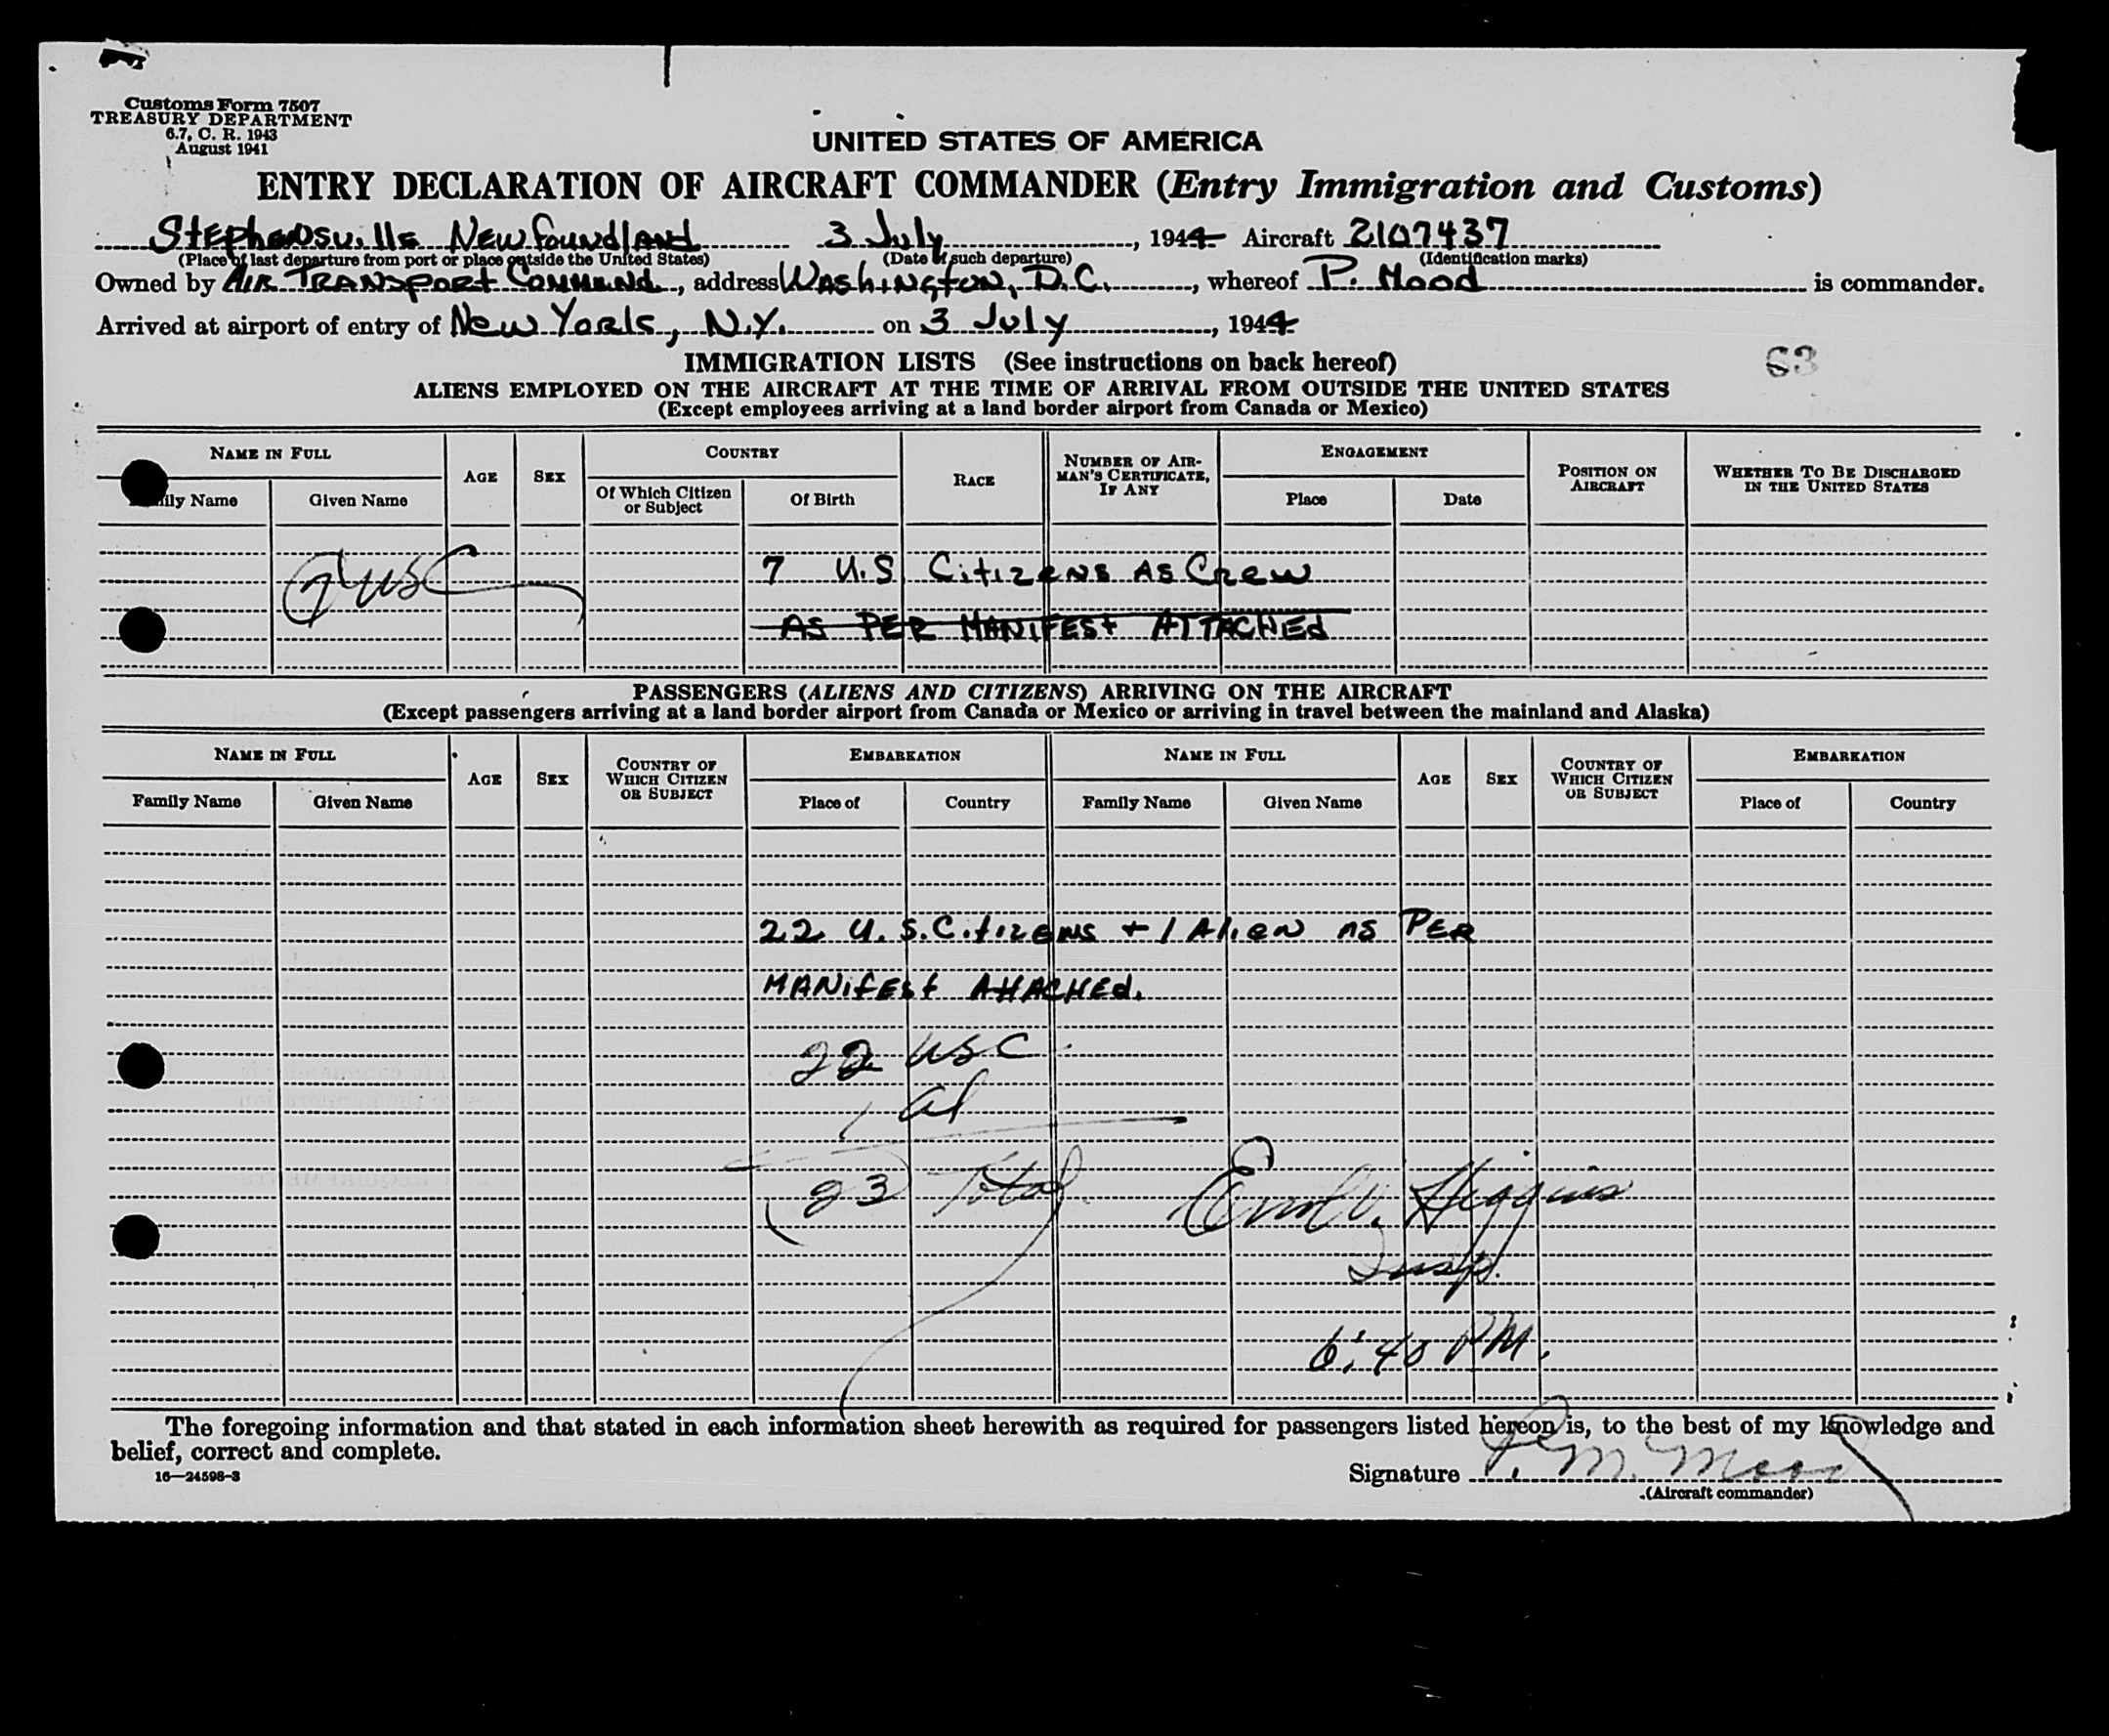 Customs Form 7507
TREASURY DEPARTMENT
6.7, C. R. 1943
August 1941
UNITED STATES OF AMERICA
ENTRY DECLARATION OF AIRCRAFT COMMANDER (Entry Immigration and Customs)
Stephensville Newfoundland 3 July, 1944 Aircraft 2107437
(Place of last departure from port or place outside the United States) (Date of such departure) (Identification marks)
Owned by AIR TRANSPORT COMMAND, address WASHINGTON, D.C., whereof P. Mood is commander.
Arrived at airport of entry of New York, N.Y. on 3 July, 1944
IMMIGRATION LISTS (See instructions on back hereof)
63
ALIENS EMPLOYED ON THE AIRCRAFT AT THE TIME OF ARRIVAL FROM OUTSIDE THE UNITED STATES
(Except employees arriving at a land border airport from Canada or Mexico)
NAME IN FULL AGE SEX COUNTRY RACE NUMBER OF AIRMAN'S CERTIFICATE, IF ANY ENGAGEMENT POSITION ON AIRCRAFT WHETHER TO BE DISCHARGED IN THE UNITED STATES
ily Name Given Name Of Which Citizen or Subject Of Birth Place Date
7 USC 7 U.S Citizens AS Crew
AS PER MANIFEST ATTACHED
PASSENGERS (ALIENS AND CITIZENS) ARRIVING ON THE AIRCRAFT
(Except passengers arriving at a land border airport from Canada or Mexico or arriving in travel between the mainland and Alaska)
NAME IN FULL AGE SEX COUNTRY OF WHICH CITIZEN OR SUBJECT EMBARKATION NAME IN FULL AGE SEX COUNTRY OF WHICH CITIZEN OR SUBJECT EMBARKATION
Family Name Given Name Place of Country Family Name Given Name Place of Country
22 U.S. Citizens + 1 Alien AS PER
MANIFEST ATTACHED.
22 USC
1 al
23 Total Higgins
Insp.
6:40 PM.
The foregoing information and that stated in each information sheet herewith as required for passengers listed hereon is, to the best of my knowledge and
belief, correct and complete.
16—24598-3
Signature P. M. Mood
(Aircraft commander)